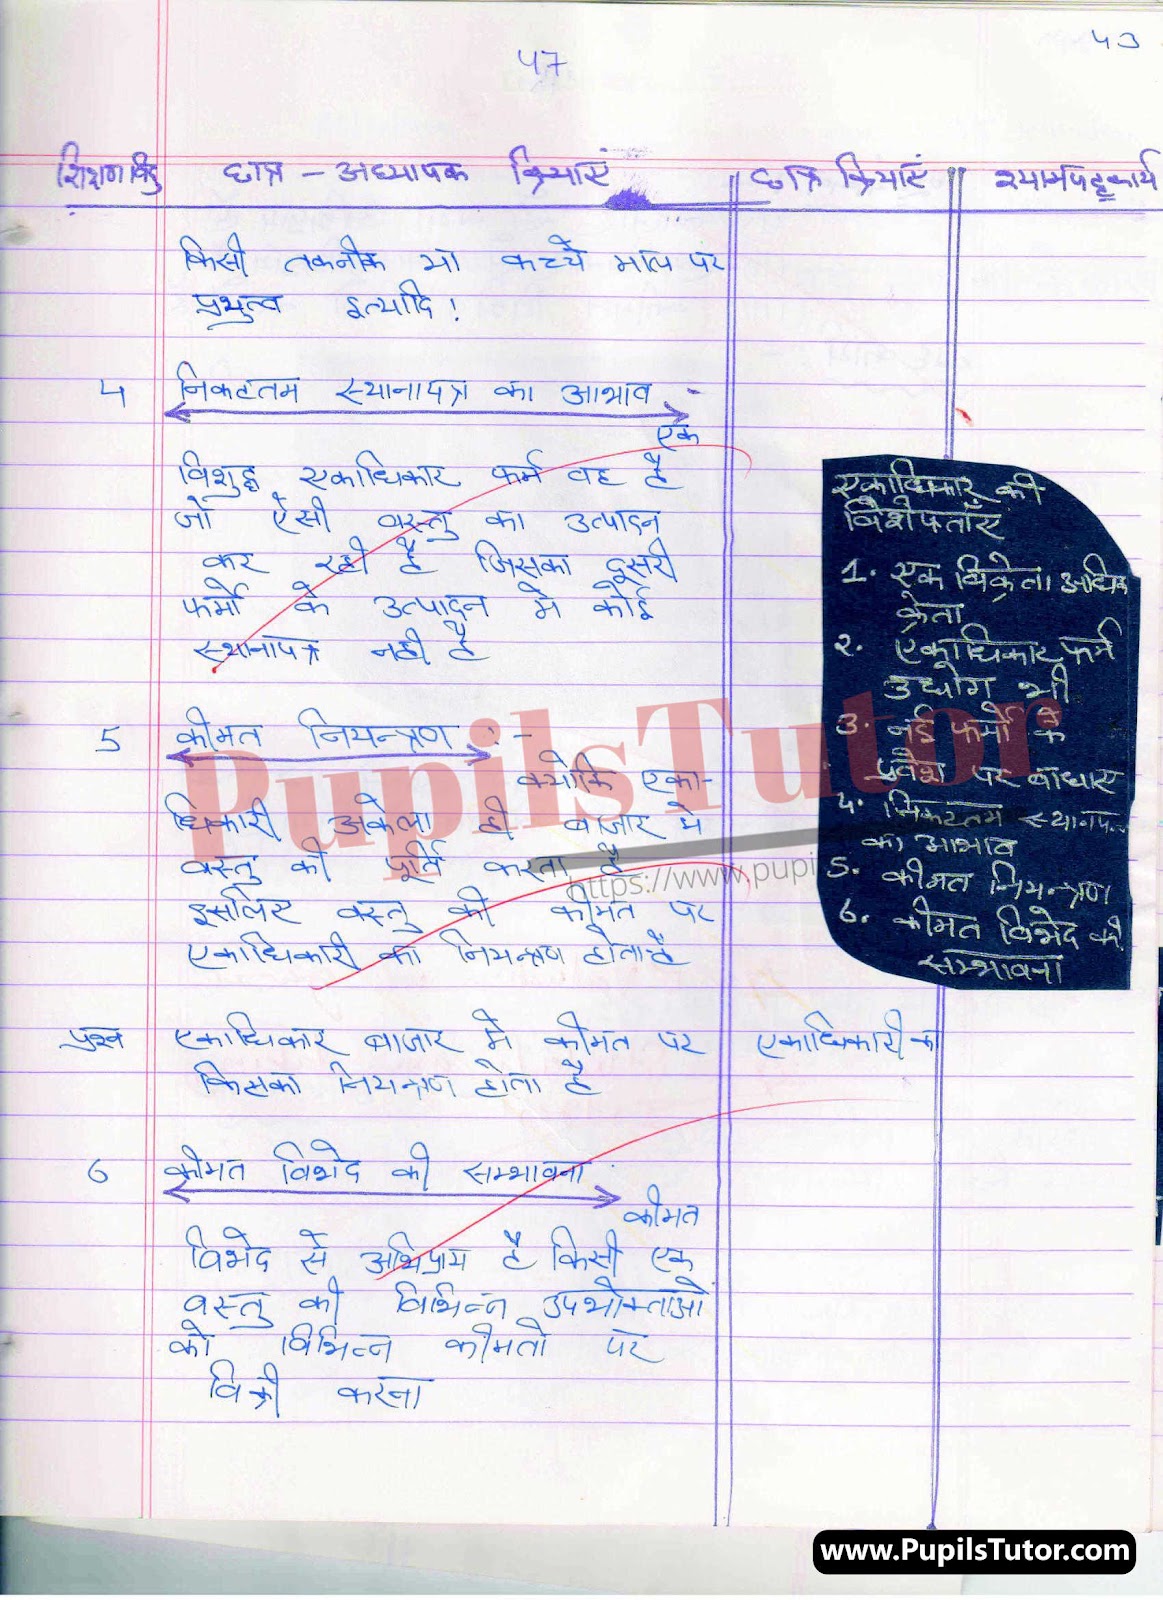 43
47
शिक्षण बिंदु छात्र - अध्यापक क्रियाएं छात्र क्रियाएं श्यामपट्टकार्य
किसी तकनीक या कच्चे माल पर
प्रभुत्व इत्यादि!
4 निकटतम स्थानापन्न का आभाव :-
एक
विशुद्ध एकाधिकार फर्म वह है
जो ऐसी वस्तु का उत्पादन
कर रही है जिसका दूसरी
फर्मो के उत्पादन मे कोई
स्थानापन्न नही है
5 कीमत नियन्त्रण :-
क्योकि एका-
धिकारी अकेला ही बाजार मे
वस्तु की पूर्ति करता है
इसलिए वस्तु की कीमत पर
एकाधिकारी का नियन्त्रण होता है
प्रश्न एकाधिकार बाजार मे कीमत पर एकाधिकारी का
किसका नियन्त्रण होता है
6 कीमत विभेद की सम्भावना
कीमत
विभेद से अभिप्राय है किसी एक
वस्तु की विभिन्न उपभोक्ताओ
को विभिन्न कीमतो पर
विक्री करना
एकाधिकार की
विशेषताएँ
1. एक विक्रेता अधिक
क्रेता
2. एकाधिकार फर्म
उद्योग भी
3. नई फर्मो के
प्रवेश पर बाधाए
4. निकटतम स्थानापन्न
का आभाव
5. कीमत नियन्त्रण
6. कीमत विभेद की
सम्भावना
PupilsTutor
https://www.pupi
www.PupilsTutor.com